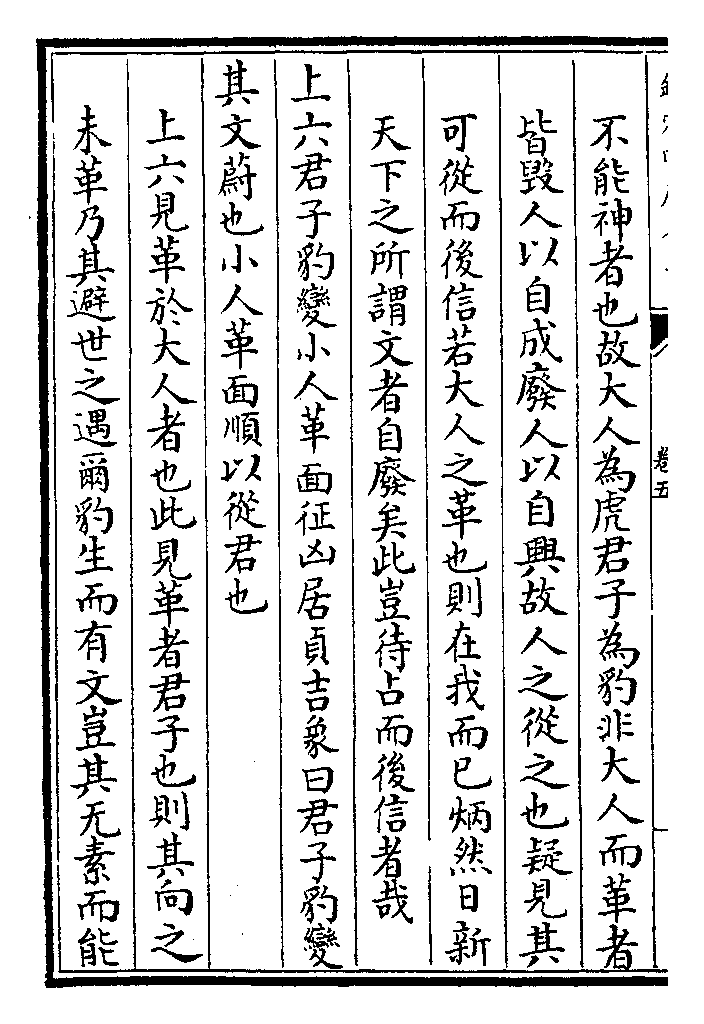 卷五
不能神者也故大人為虎君子為豹非大人而革者
皆毀人以自成廢人以自興故人之從之也疑見其
可從而後信若大人之革也則在我而已炳然日新
天下之所謂文者自廢矣此豈待占而後信者哉
上六君子豹變小人革面征凶居貞吉象曰君子豹變
其文蔚也小人革面順以從君也
上六見革於大人者也此見革者君子也則其向之
未革乃其避世之遇爾豹生而有文豈其无素而能